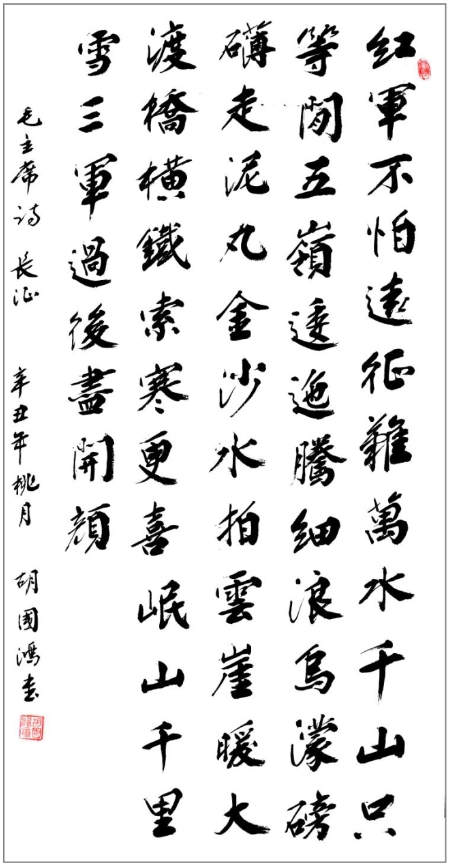 紅軍不怕遠征難萬水千山只
等閒五嶺逶迤騰細浪烏濛磅
礴走泥丸金沙水拍雲崖暖大
渡橋橫鐵索寒更喜岷山千里
雪三軍過後盡開顏
毛主席詩 長征 辛丑年桃月 胡國鴻書